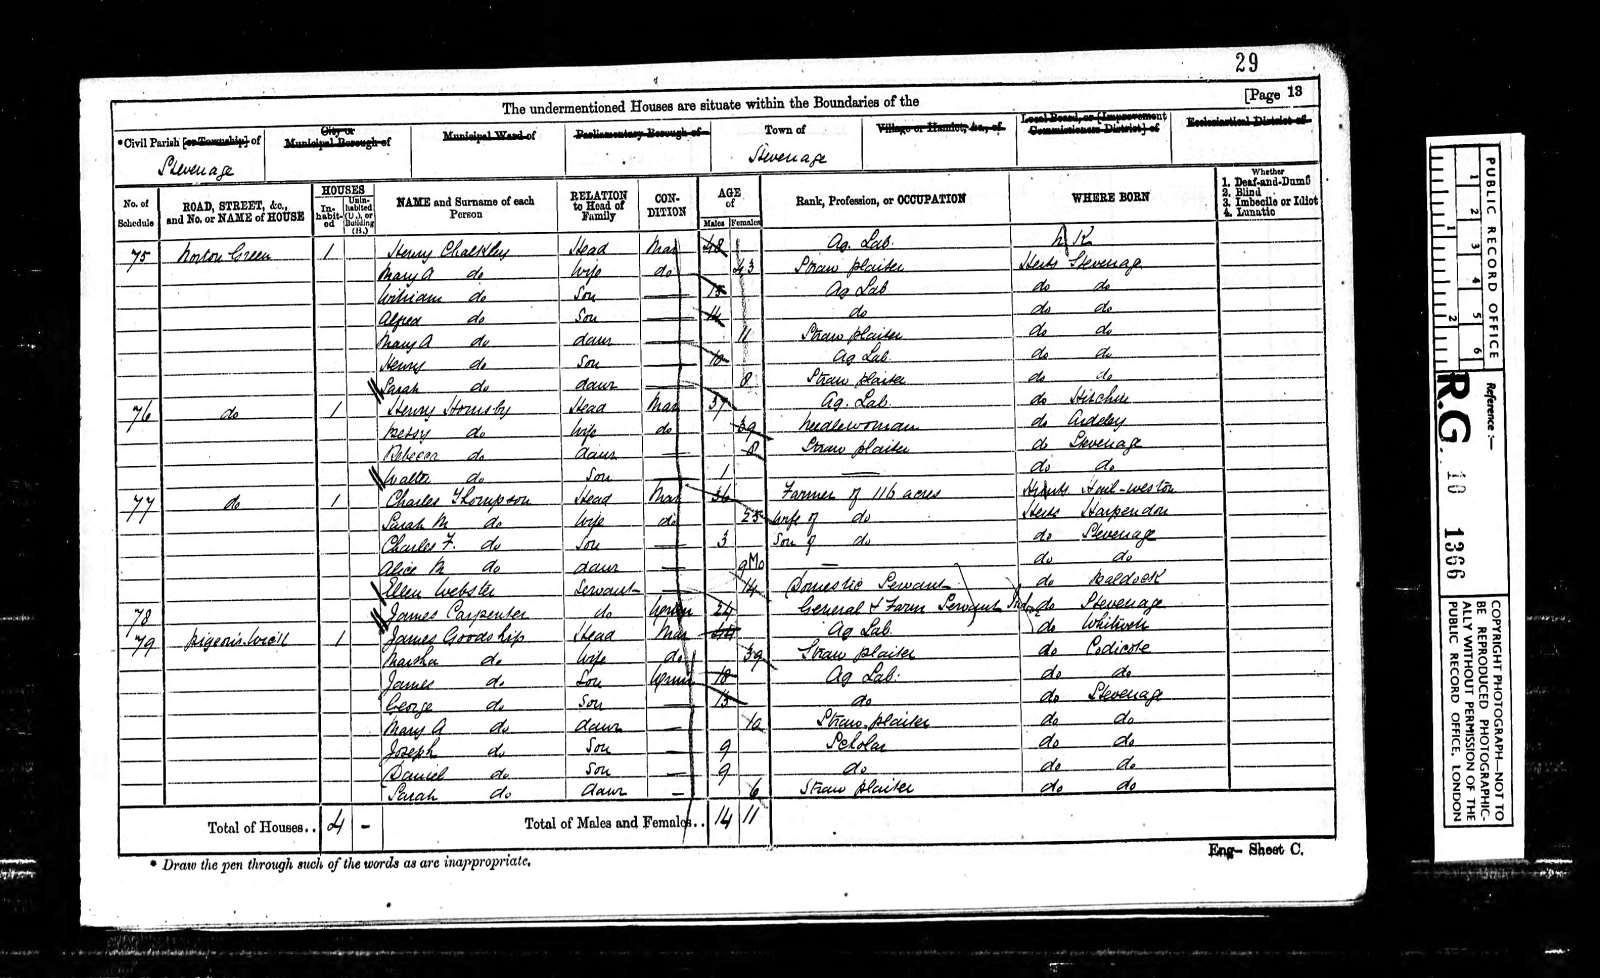 29
The undermentioned Houses are situate within the Boundaries of the [Page 13
*Civil Parish [or Township] of City or Municipal Borough of Municipal Ward of Parliamentary Borough of Town of Village or Hamlet, &c., of Local Board, or [Improvement Commissioners District] of Ecclesiastical District of
Stevenage Stevenage
No. of Schedule ROAD, STREET, &c., and No. or NAME of HOUSE HOUSES In-habit-ed Unin-habited (U.), or Building (B.) NAME and Surname of each Person RELATION to Head of Family CON-DITION AGE of Males Females Rank, Profession, or OCCUPATION WHERE BORN Whether 1. Deaf-and-Dumb 2. Blind 3. Imbecile or Idiot 4. Lunatic
75 Norton Green 1 Henry Chalkley Head Mar 48 Ag. Lab. N K
Mary A do Wife do 43 Straw plaiter Herts Stevenage
William do Son 15 Ag Lab do do
Alfred do Son 14 do do do
Mary A do daur 11 Straw plaiter do do
Henry do Son 10 Ag Lab do do
Sarah do daur 8 Straw plaiter do do
76 do 1 Henry Hornsby Head Mar 37 Ag. Lab. do Hitchin
Betsy do Wife do 39 Needlewoman do Ardeley
Rebecca do daur 8 Straw plaiter do Stevenage
Walter do Son 1 do do
77 do 1 Charles Thompson Head Mar 36 Farmer of 116 acres Hunts Hail-weston
Sarah M do Wife do 25 Wife of do Herts Harpenden
Charles F. do Son 3 Son of do do Stevenage
Alice M do daur 9Mo do do
Ellen Webster Servant 14 Domestic Servant do Baldock
78 James Carpenter do Unm 24 General & Farm Servant do Stevenage
79 Pigeonswick 1 James Goodship Head Mar 44 Ag Lab. do Whitwell
Martha do Wife do 39 Straw plaiter do Codicote
James do Son Unm 18 Ag Lab. do do
George do Son 13 do do Stevenage
Mary A do daur 10 Straw plaiter do do
Joseph do Son 9 Scholar do do
Daniel do Son 9 do do do
Sarah do daur 6 Straw plaiter do do
Total of Houses.. 4 - Total of Males and Females.. 14 11
* Draw the pen through such of the words as are inappropriate.
Eng- Sheet C.
PUBLIC RECORD OFFICE
1 2 3 4 5 6
1 2
Reference :-
R.G. 10 1366
COPYRIGHT PHOTOGRAPH-NOT TO
BE REPRODUCED PHOTOGRAPHIC-
ALLY WITHOUT PERMISSION OF THE
PUBLIC RECORD OFFICE, LONDON